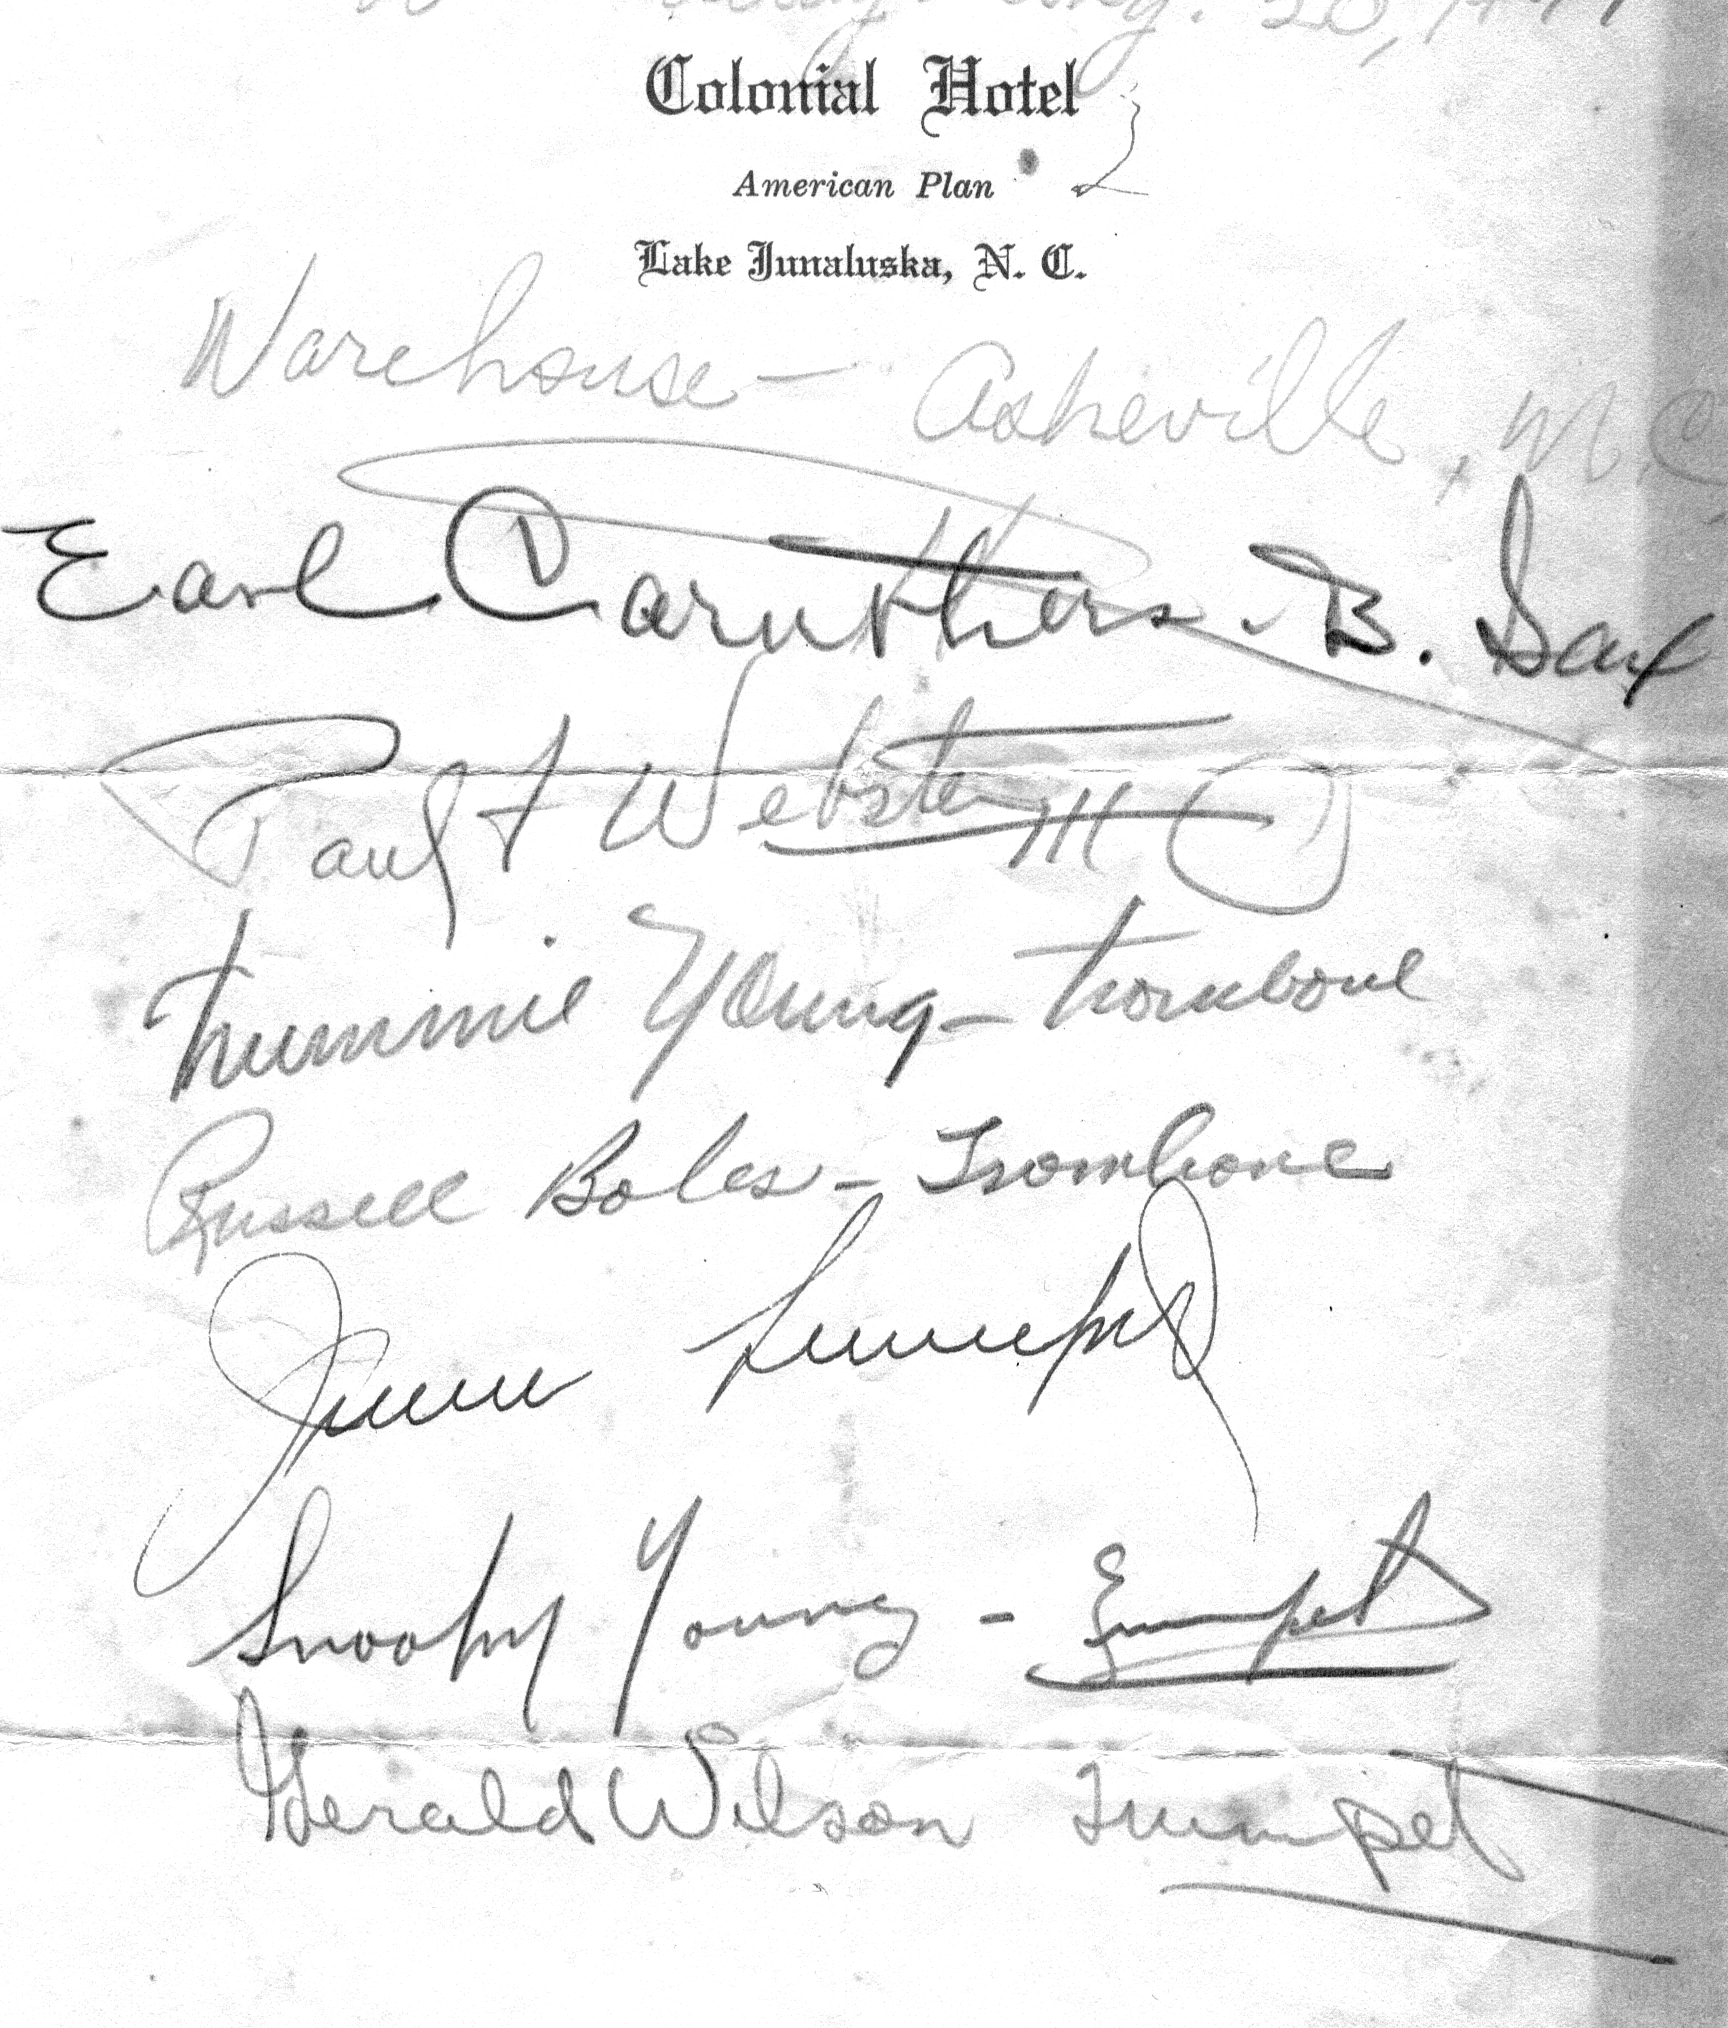 Aug. 20,
Colonial Hotel
American Plan
Lake Junaluska, N. C.
Warehouse - Asheville, N.C.
Earl Caruthers - B. Sax
Paul F Webster III
Trummie Young - trombone
Russell Boles - Trombone
Snooky Young - Trumpet
Gerald Wilson Trumpet